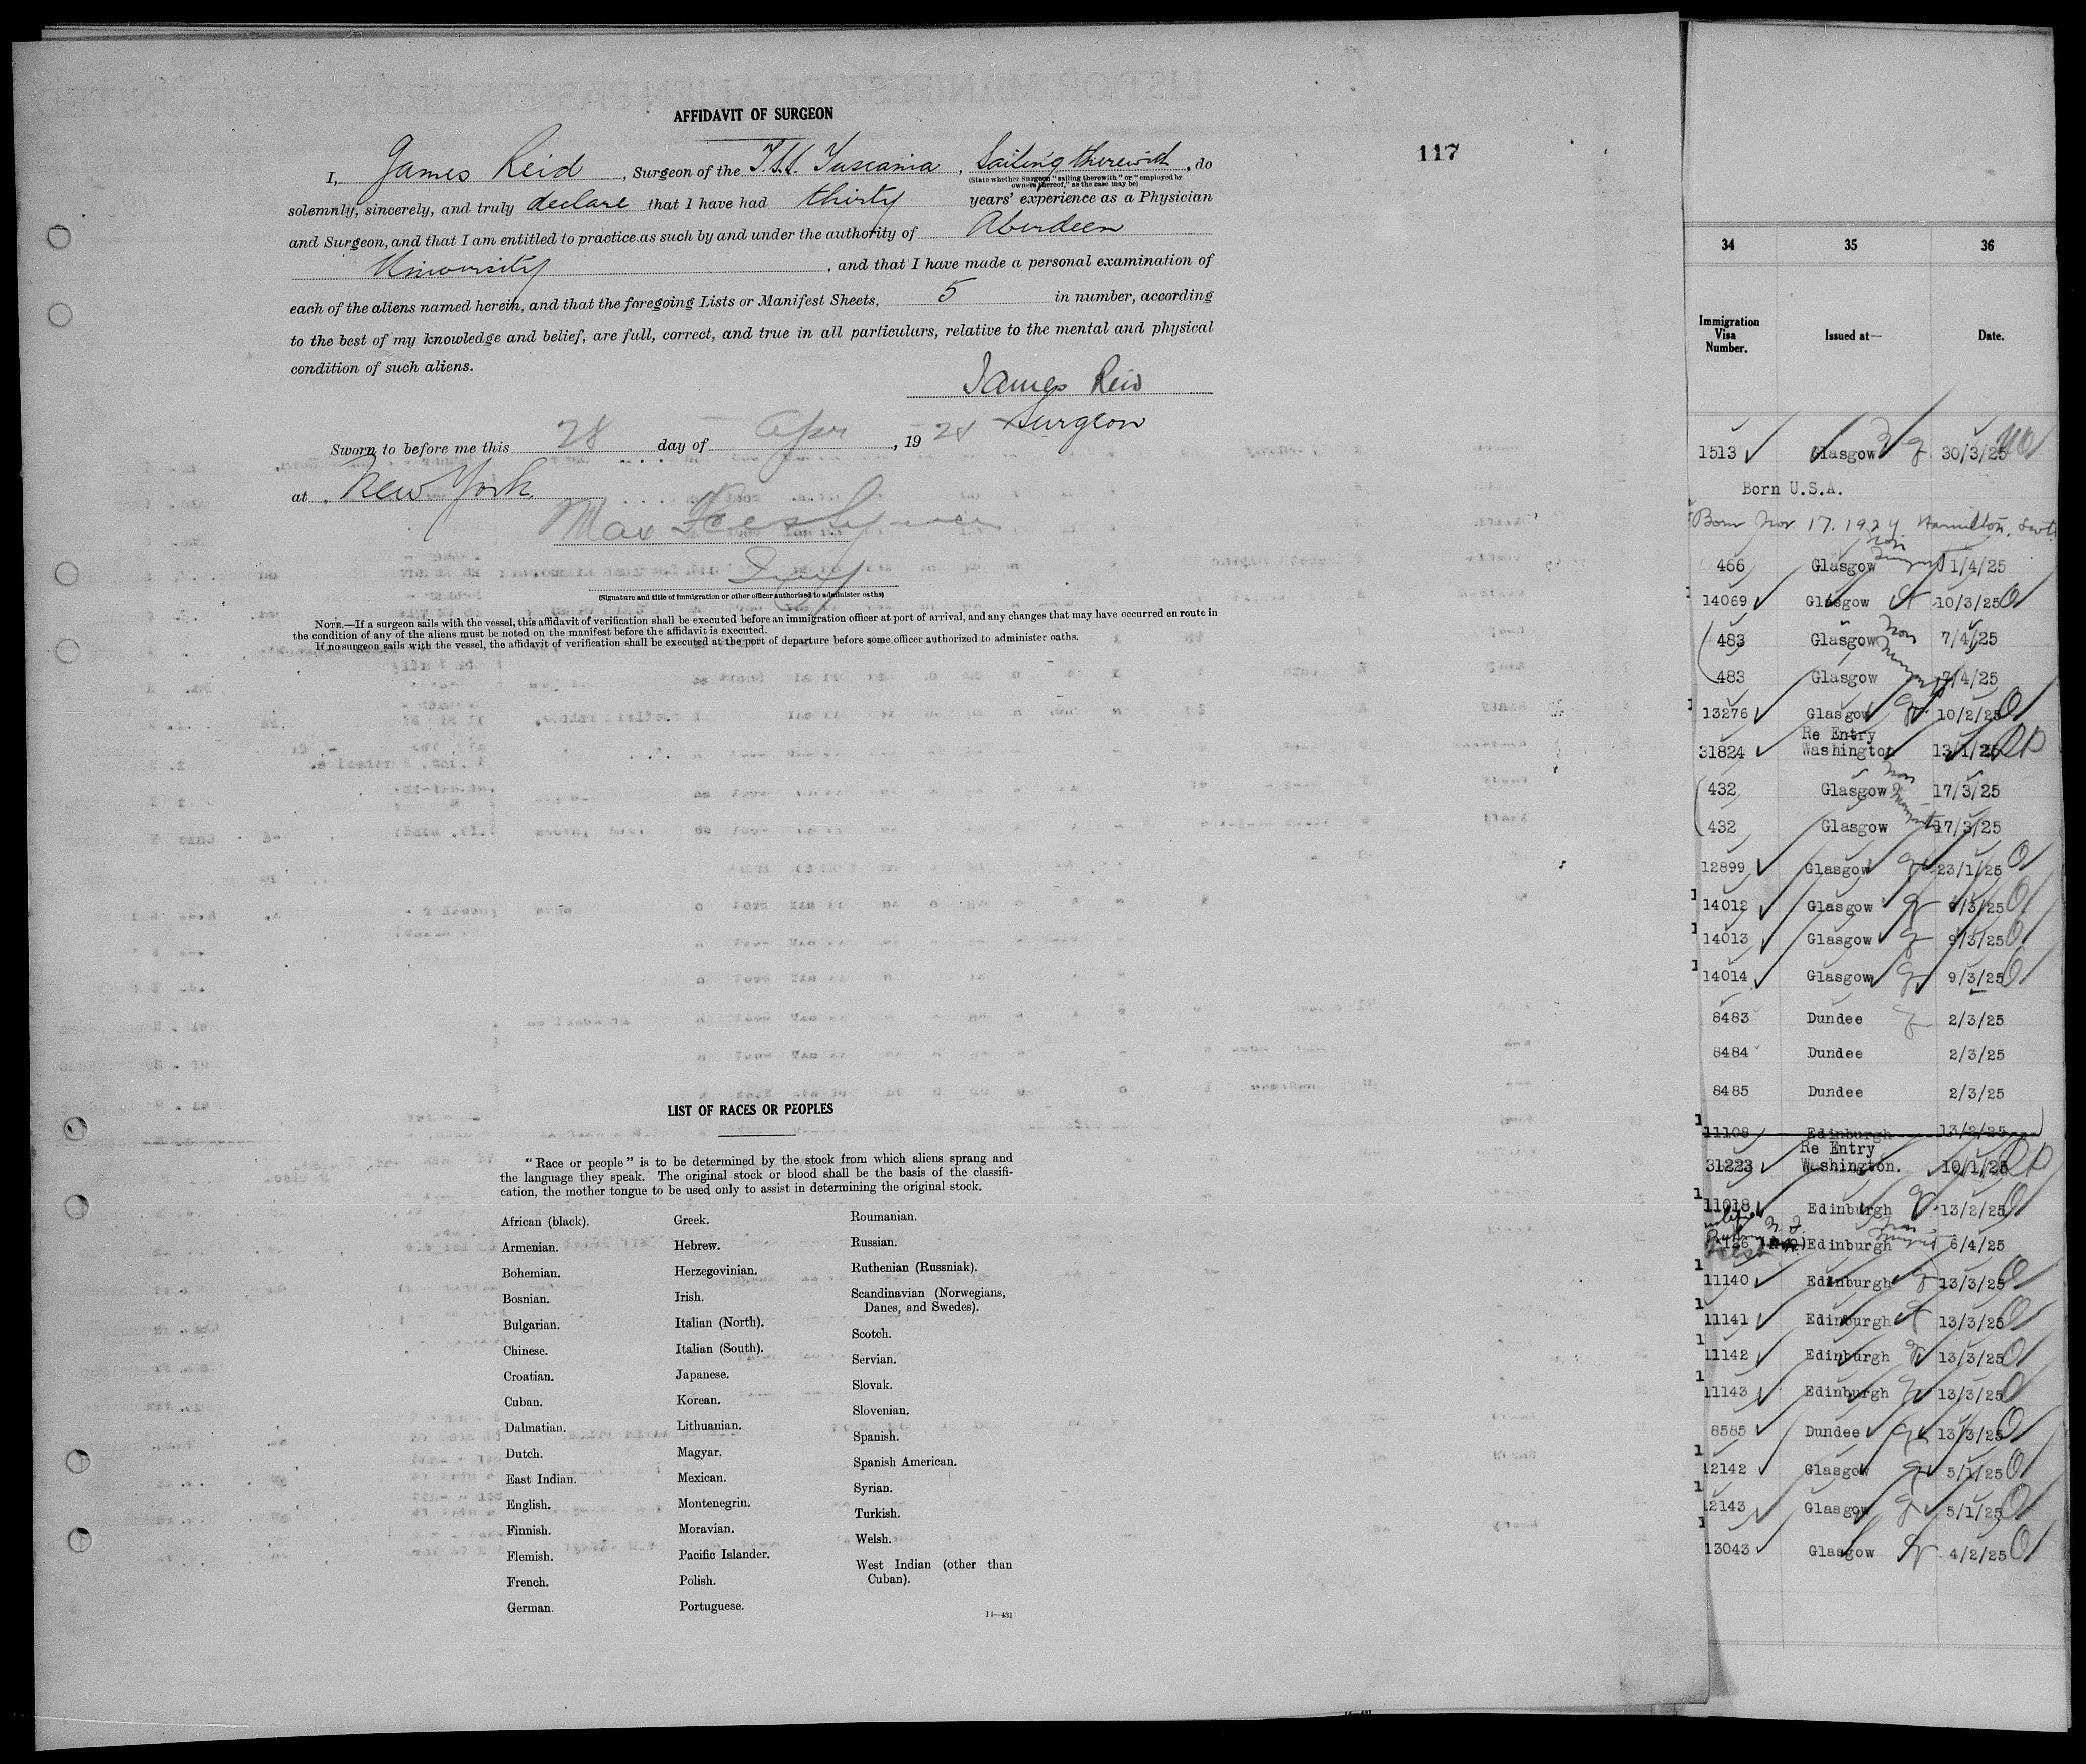 AFFIDAVIT OF SURGEON
117
I, James Reid, Surgeon of the T.S.S. Tuscania, Sailing therewith, do
(State whether Surgeon "sailing therewith" or "employed by
owners thereof," as the case may be)
solemnly, sincerely, and truly declare that I have had thirty years' experience as a Physician
and Surgeon, and that I am entitled to practice as such by and under the authority of Aberdeen
University, and that I have made a personal examination of
each of the aliens named herein, and that the foregoing Lists or Manifest Sheets, 5 in number, according
to the best of my knowledge and belief, are full, correct, and true in all particulars, relative to the mental and physical
condition of such aliens.
James Reid
Surgeon
Sworn to before me this 28 day of Apr, 19
at New York
Max
(Signature and title of immigration or other officer authorized to administer oaths)
NOTE.—If a surgeon sails with the vessel, this affidavit of verification shall be executed before an immigration officer at port of arrival, and any changes that may have occurred en route in
the condition of any of the aliens must be noted on the manifest before the affidavit is executed.
If no surgeon sails with the vessel, the affidavit of verification shall be executed at the port of departure before some officer authorized to administer oaths.
LIST OF RACES OR PEOPLES
"Race or people" is to be determined by the stock from which aliens sprang and
the language they speak. The original stock or blood shall be the basis of the classifi-
cation, the mother tongue to be used only to assist in determining the original stock.
African (black).
Armenian.
Bohemian.
Bosnian.
Bulgarian.
Chinese.
Croatian.
Cuban.
Dalmatian.
Dutch.
East Indian.
English.
Finnish.
Flemish.
French.
German.
Greek.
Hebrew.
Herzegovinian.
Irish.
Italian (North).
Italian (South).
Japanese.
Korean.
Lithuanian.
Magyar.
Mexican.
Montenegrin.
Moravian.
Pacific Islander.
Polish.
Portuguese.
Roumanian.
Russian.
Ruthenian (Russniak).
Scandinavian (Norwegians,
Danes, and Swedes).
Scotch.
Servian.
Slovak.
Slovenian.
Spanish.
Spanish American.
Syrian.
Turkish.
Welsh.
West Indian (other than
Cuban).
11—431
34 35 36
Immigration
Visa
Number.
Issued at—
Date.
1513 Glasgow 30/3/25
Born U.S.A.
Born Nov 17. 1924 Hamilton, Scot.
466 Glasgow 1/4/25
14069 Glasgow 10/3/25
483 Glasgow 7/4/25
483 Glasgow 7/4/25
13276 Glasgow 10/2/25
Re Entry
31824 Washington 13/1/25
432 Glasgow 17/3/25
432 Glasgow 17/3/25
12899 Glasgow 23/1/25
14012 Glasgow 9/3/25
14013 Glasgow 9/3/25
14014 Glasgow 9/3/25
8483 Dundee 2/3/25
8484 Dundee 2/3/25
8485 Dundee 2/3/25
11108 Edinburgh 13/2/25
Re Entry
31223 Washington. 10/1/25
11018 Edinburgh 13/2/25
136 Edinburgh 6/4/25
11140 Edinburgh 13/3/25
11141 Edinburgh 13/3/25
11142 Edinburgh 13/3/25
11143 Edinburgh 13/3/25
8585 Dundee 13/3/25
12142 Glasgow 5/1/25
12143 Glasgow 5/1/25
13043 Glasgow 4/2/25